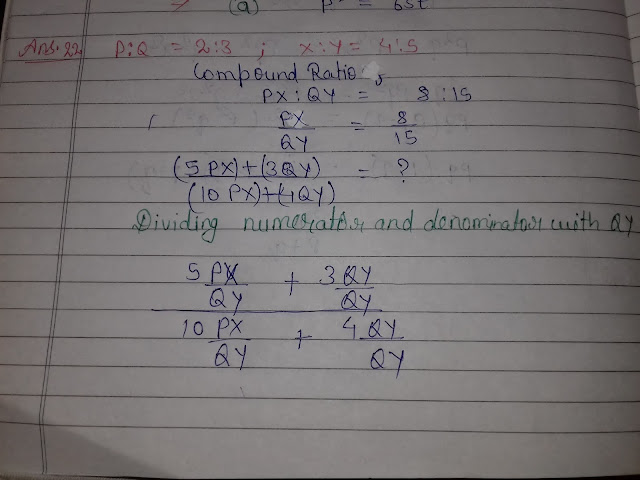 (a) p² = 6st
Ans. 22 P:Q = 2:3 ; X:Y = 4:5
Compound Ratio,
PX : QY = 8 : 15
PX/QY = 8/15
(5 PX)+(3QY) = ?
(10 PX)+(4QY)
Dividing numerator and denominator with QY
5 PX/QY + 3 QY/QY
10 PX/QY + 4 QY/QY